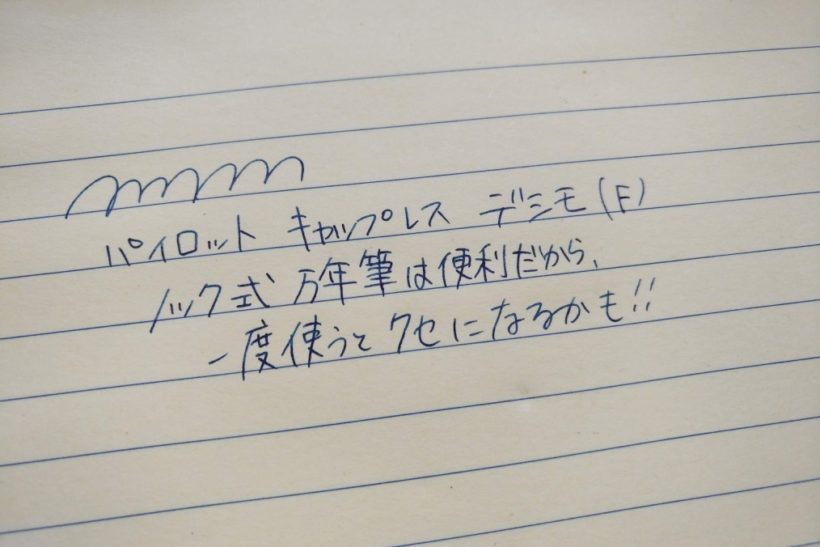 パイロット キャップレス デシモ(F)
ノック式 万年筆は便利だから、
一度使うと クセになるかも!!